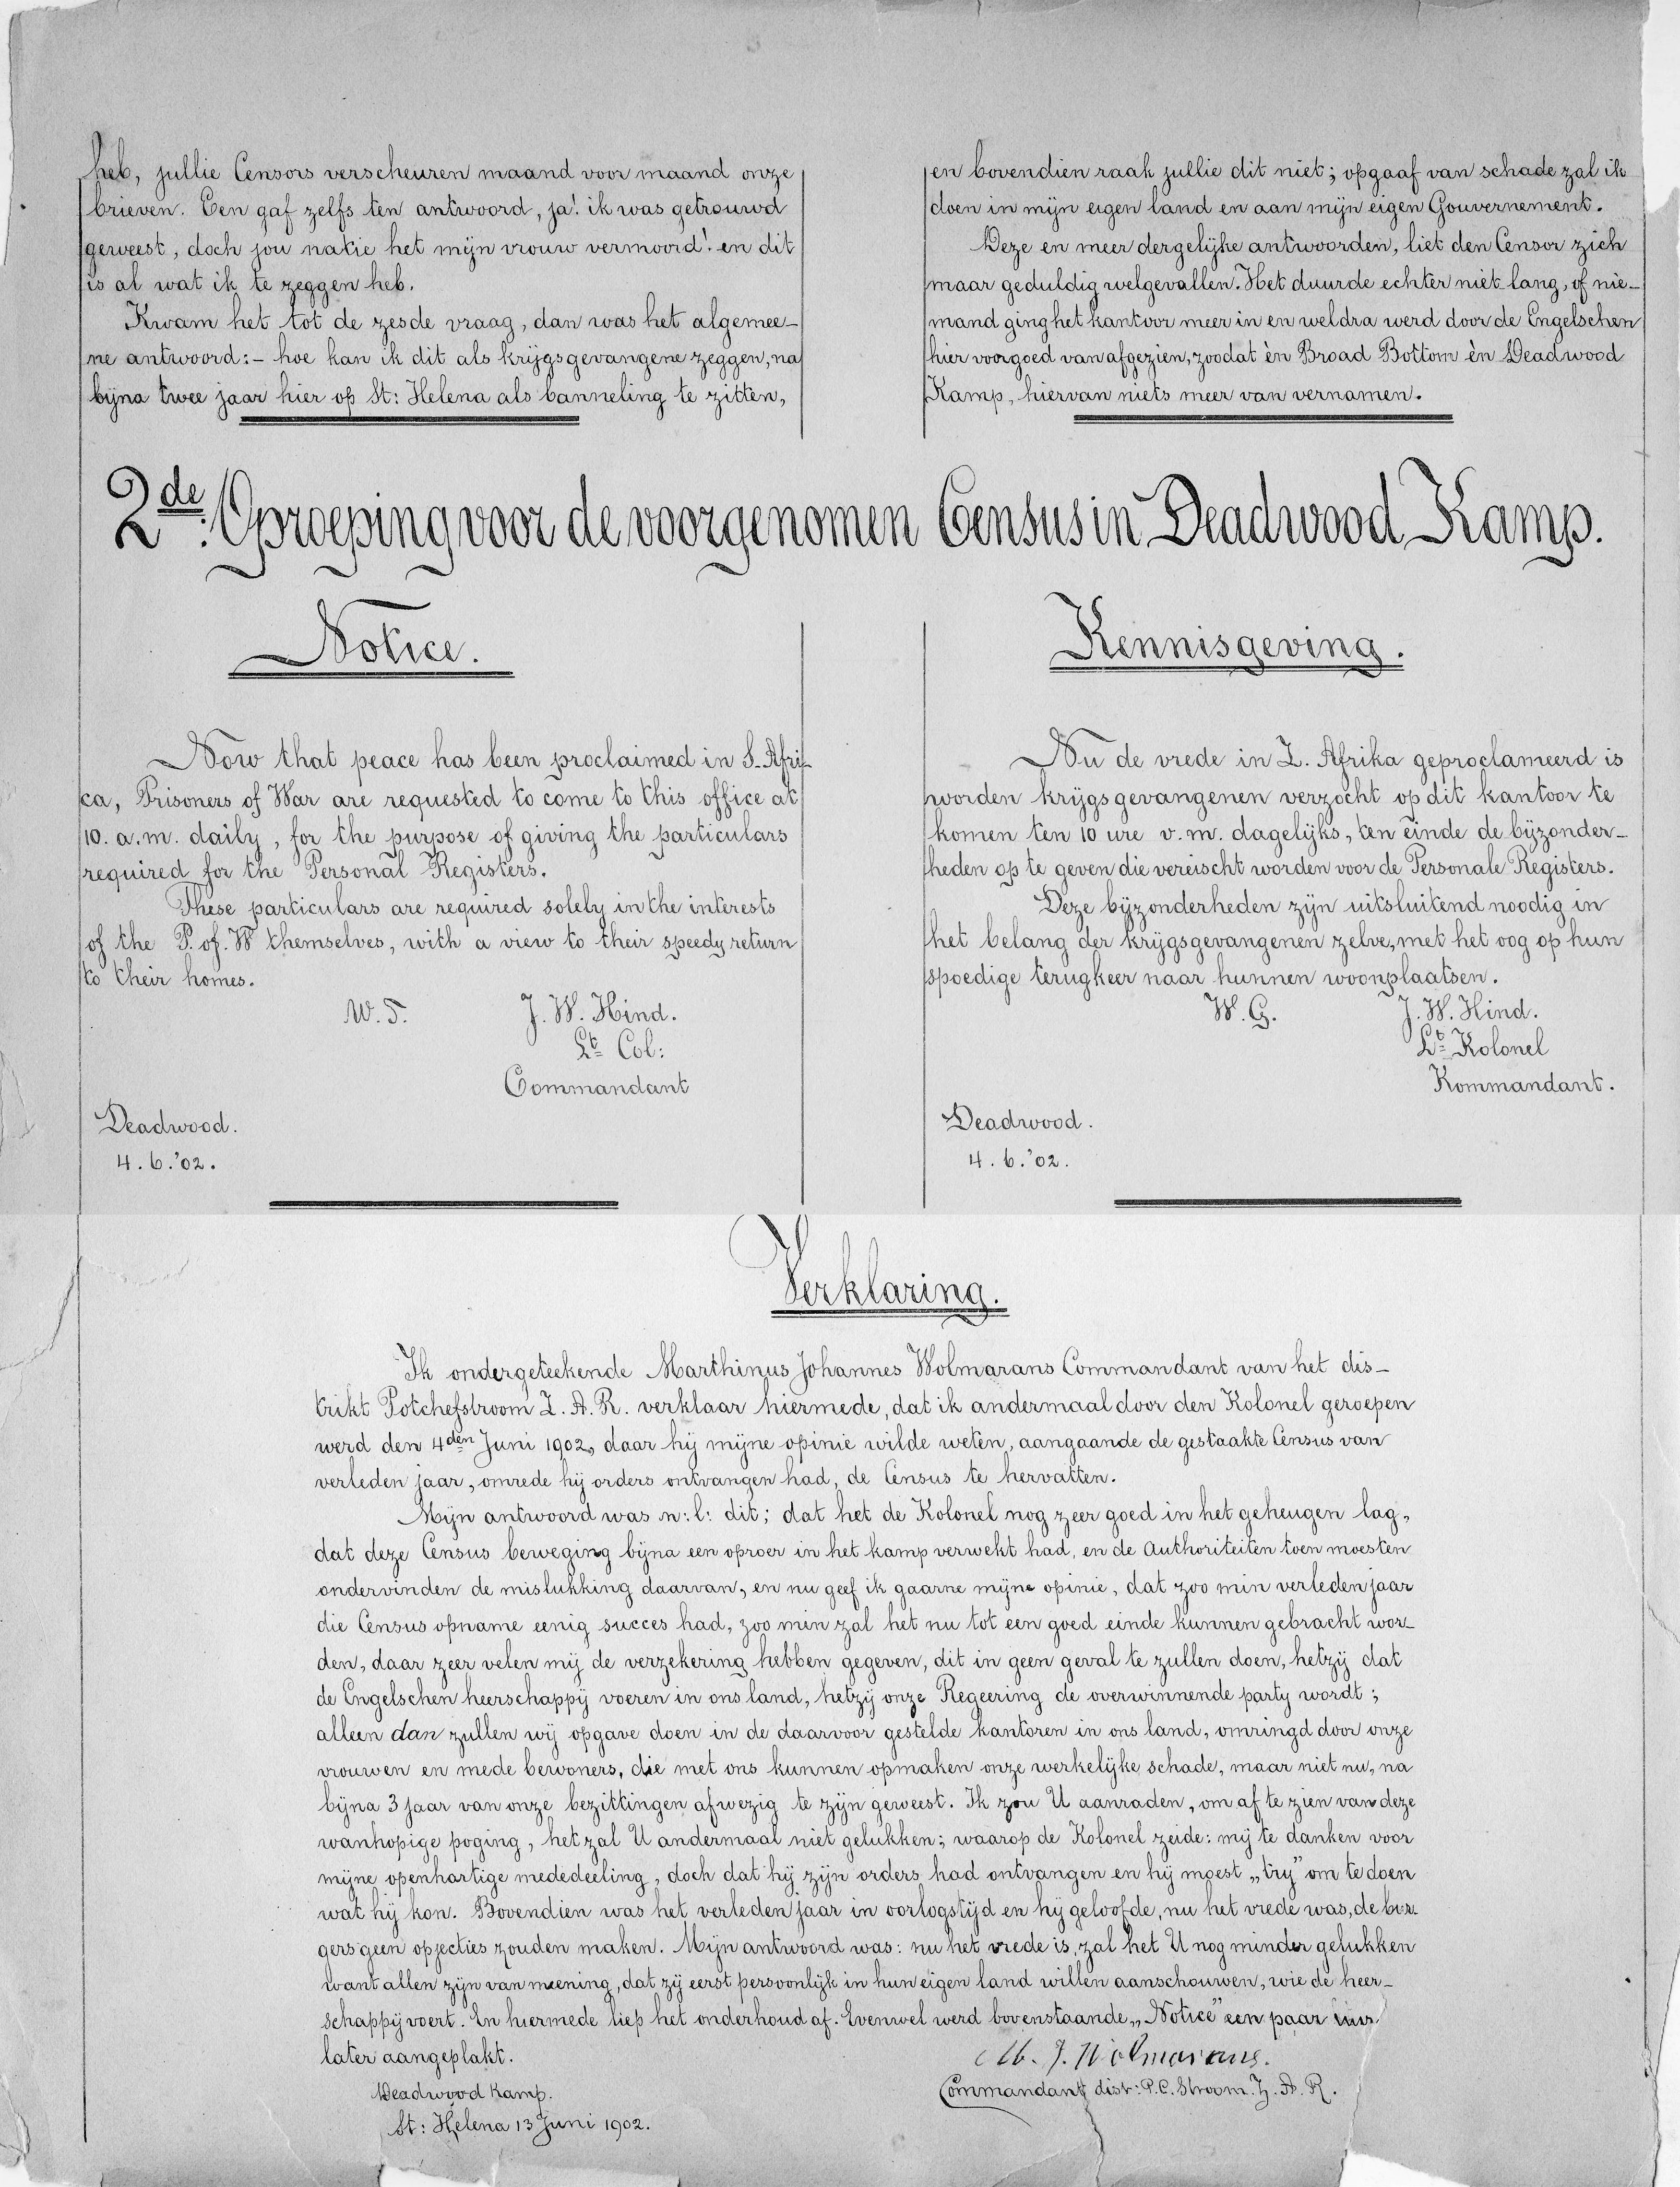 heb, jullie Censors verscheuren maand voor maand onze
brieven. Een gaf zelfs ten antwoord, ja! ik was getrouwd
geweest, doch jou natie het mijn vrouw vermoord! en dit
is al wat ik te zeggen heb.
Kwam het tot de zesde vraag, dan was het algemee-
ne antwoord:- hoe kan ik dit als krijgsgevangene zeggen, na
bijna twee jaar hier op St: Helena als banneling te zitten,
en bovendien raak jullie dit niet; opgaaf van schade zal ik
doen in mijn eigen land en aan mijn eigen Gouvernement.
Deze en meer dergelijke antwoorden, liet den Censor zich
maar geduldig welgevallen. Het duurde echter niet lang, of nie-
mand ging het kantoor meer in en weldra werd door de Engelschen
hier voorgoed van afgezien, zoodat èn Broad Bottom èn Deadwood
Kamp, hiervan niets meer van vernamen.
2de. Oproeping voor de voorgenomen Census in Deadwood Kamp.
Notice.
Now that peace has been proclaimed in S. Afri-
ca, Prisoners of War are requested to come to this office at
10. a.m. daily, for the purpose of giving the particulars
required for the Personal Registers.
These particulars are required solely in the interests
of the P. of. W themselves, with a view to their speedy return
to their homes.
W. T. J. W. Hind.
Lt Col:
Commandant
Deadwood.
4. 6. '02.
Kennisgeving.
Nu de vrede in Z. Afrika geproclameerd is
worden krijgsgevangenen verzocht op dit kantoor te
komen ten 10 ure v.m. dagelijks, ten einde de bijzonder-
heden op te geven die vereischt worden voor de Personale Registers.
Deze bijzonderheden zijn uitsluitend noodig in
het belang der krijgsgevangenen zelve, met het oog op hun
spoedige terugkeer naar hunnen woonplaatsen.
W. G. J. W. Hind.
Lt Kolonel
Kommandant.
Deadwood.
4. 6. '02.
Verklaring.
Ik ondergeteekende Marthinus Johannes Wolmarans Commandant van het dis-
trikt Potchefstroom Z. A. R. verklaar hiermede, dat ik andermaal door den Kolonel geroepen
werd den 4den Juni 1902, daar hij mijne opinie wilde weten, aangaande de gestaakte Census van
verleden jaar, omrede hij orders ontvangen had, de Census te hervatten.
Mijn antwoord was n:l: dit; dat het de Kolonel nog zeer goed in het geheugen lag,
dat deze Census beweging bijna een oproer in het kamp verwekt had, en de Authoriteiten toen moesten
ondervinden de mislukking daarvan, en nu geef ik gaarne mijne opinie, dat zoo min verleden jaar
die Census opname eenig succes had, zoo min zal het nu tot een goed einde kunnen gebracht wor-
den, daar zeer velen mij de verzekering hebben gegeven, dit in geen geval te zullen doen, hetzij dat
de Engelschen heerschappij voeren in ons land, hetzij onze Regeering de overwinnende party wordt;
alleen dan zullen wij opgave doen in de daarvoor gestelde kantoren in ons land, omringd door onze
vrouwen en mede bewoners, die met ons kunnen opmaken onze werkelijke schade, maar niet nu, na
bijna 3 jaar van onze bezittingen afwezig te zijn geweest. Ik zou U aanraden, om af te zien van deze
wanhopige poging, het zal U andermaal niet gelukken; waarop de Kolonel zeide: mij te danken voor
mijne openhartige mededeeling, doch dat hij zijn orders had ontvangen en hij moest „try" om te doen
wat hij kon. Bovendien was het verleden jaar in oorlogstijd en hij geloofde, nu het vrede was, de bur-
gers geen opjecties zouden maken. Mijn antwoord was: nu het vrede is, zal het U nog minder gelukken
want allen zijn van meening, dat zij eerst persoonlijk in hun eigen land willen aanschouwen, wie de heer-
schappij voert. En hiermede liep het onderhoud af. Evenwel werd bovenstaande „Notice" een paar uur
later aangeplakt.
M. J. Wolmarans.
Commandant distr: P.C. Stroom. Z. A. R.
Deadwood Kamp.
St: Helena 13 Juni 1902.